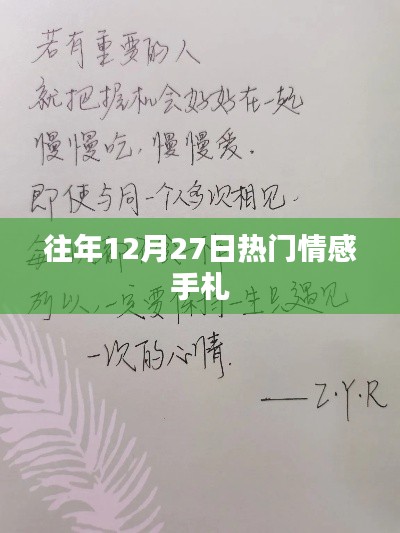 若有重要的人
就把握机会好好在一起
慢慢吃，慢慢爱.
即使与同一个人多次相见.
每
往年12月27日热门情感
手札
所以，一定要保 一生只遇见
一次的心情.
——Z·Y·R